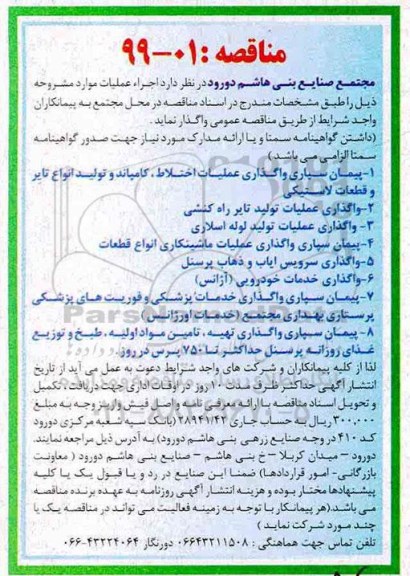 مناقصه : ۰۱-۹۹
مجتمع صنایع بنی هاشم دورود در نظر دارد اجراء عملیات موارد مشروحه
ذیل را طبق مشخصات مندرج در اسناد مناقصه در محل مجتمع به پیمانکاران
واجد شرایط از طریق مناقصه عمومی واگذار نماید .
(داشتن گواهینامه سمتا و یا ارائه مدارک مورد نیاز جهت صدور گواهینامه
سمتا الزامی می باشد)
۱-پیمان سپاری واگذاری عملیات اختلاط ، کامپاند و تولید انواع تایر
و قطعات لاستیکی
۲-واگذاری عملیات تولید تایر راه کنشی
۳- واگذاری عملیات تولید لوله اسلاری
۴-پیمان سپاری واگذاری عملیات ماشینکاری انواع قطعات
۵-واگذاری سرویس ایاب و ذهاب پرسنل
۶-واگذاری خدمات خودرویی (آژانس)
۷-پیمان سپاری واگذاری خدمات پزشکی و فوریت های پزشکی
پرستاری بهداری مجتمع (خدمات اورژانس)
۸- پیمان سپاری واگذاری تهیه ، تامین مواد اولیه ، طبخ و توزیع
غذای روزانه پرسنل حداکثر تا ۷۵۰ پرس در روز
لذا از کلیه پیمانکاران و شرکت های واجد شرایط دعوت به عمل می آید از تاریخ
انتشار آگهی حداکثر ظرف مدت ۱۰ روز در اوقات اداری جهت دریافت ، تکمیل
و تحویل اسناد مناقصه با ارائه معرفی نامه و اصل فیش واریز وجه به مبلغ
۳۰۰,۰۰۰ ریال به حساب جاری ۲۸۹۴۱۴۳ (بانک سپه شعبه مرکزی دورود
کد ۴۱۰ در وجه صنایع زرهی بنی هاشم دورود) به آدرس ذیل مراجعه نمایند.
دورود - میدان کربلا - خ بنی هاشم - صنایع بنی هاشم دورود ( معاونت
بازرگانی- امور قراردادها) ضمنا این صنایع در رد و یا قبول یک یا کلیه
پیشنهادها مختار بوده و هزینه انتشار آگهی روزنامه به عهده برنده مناقصه
می باشد.(هر پیمانکار با توجه به زمینه فعالیت می تواند در مناقصه یک یا
چند مورد شرکت نماید )
تلفن تماس جهت هماهنگی : ۰۶۶۴۳۲۱۱۵۰۸ دورنگار ۴۳۲۲۴۰۶۴-۰۶۶